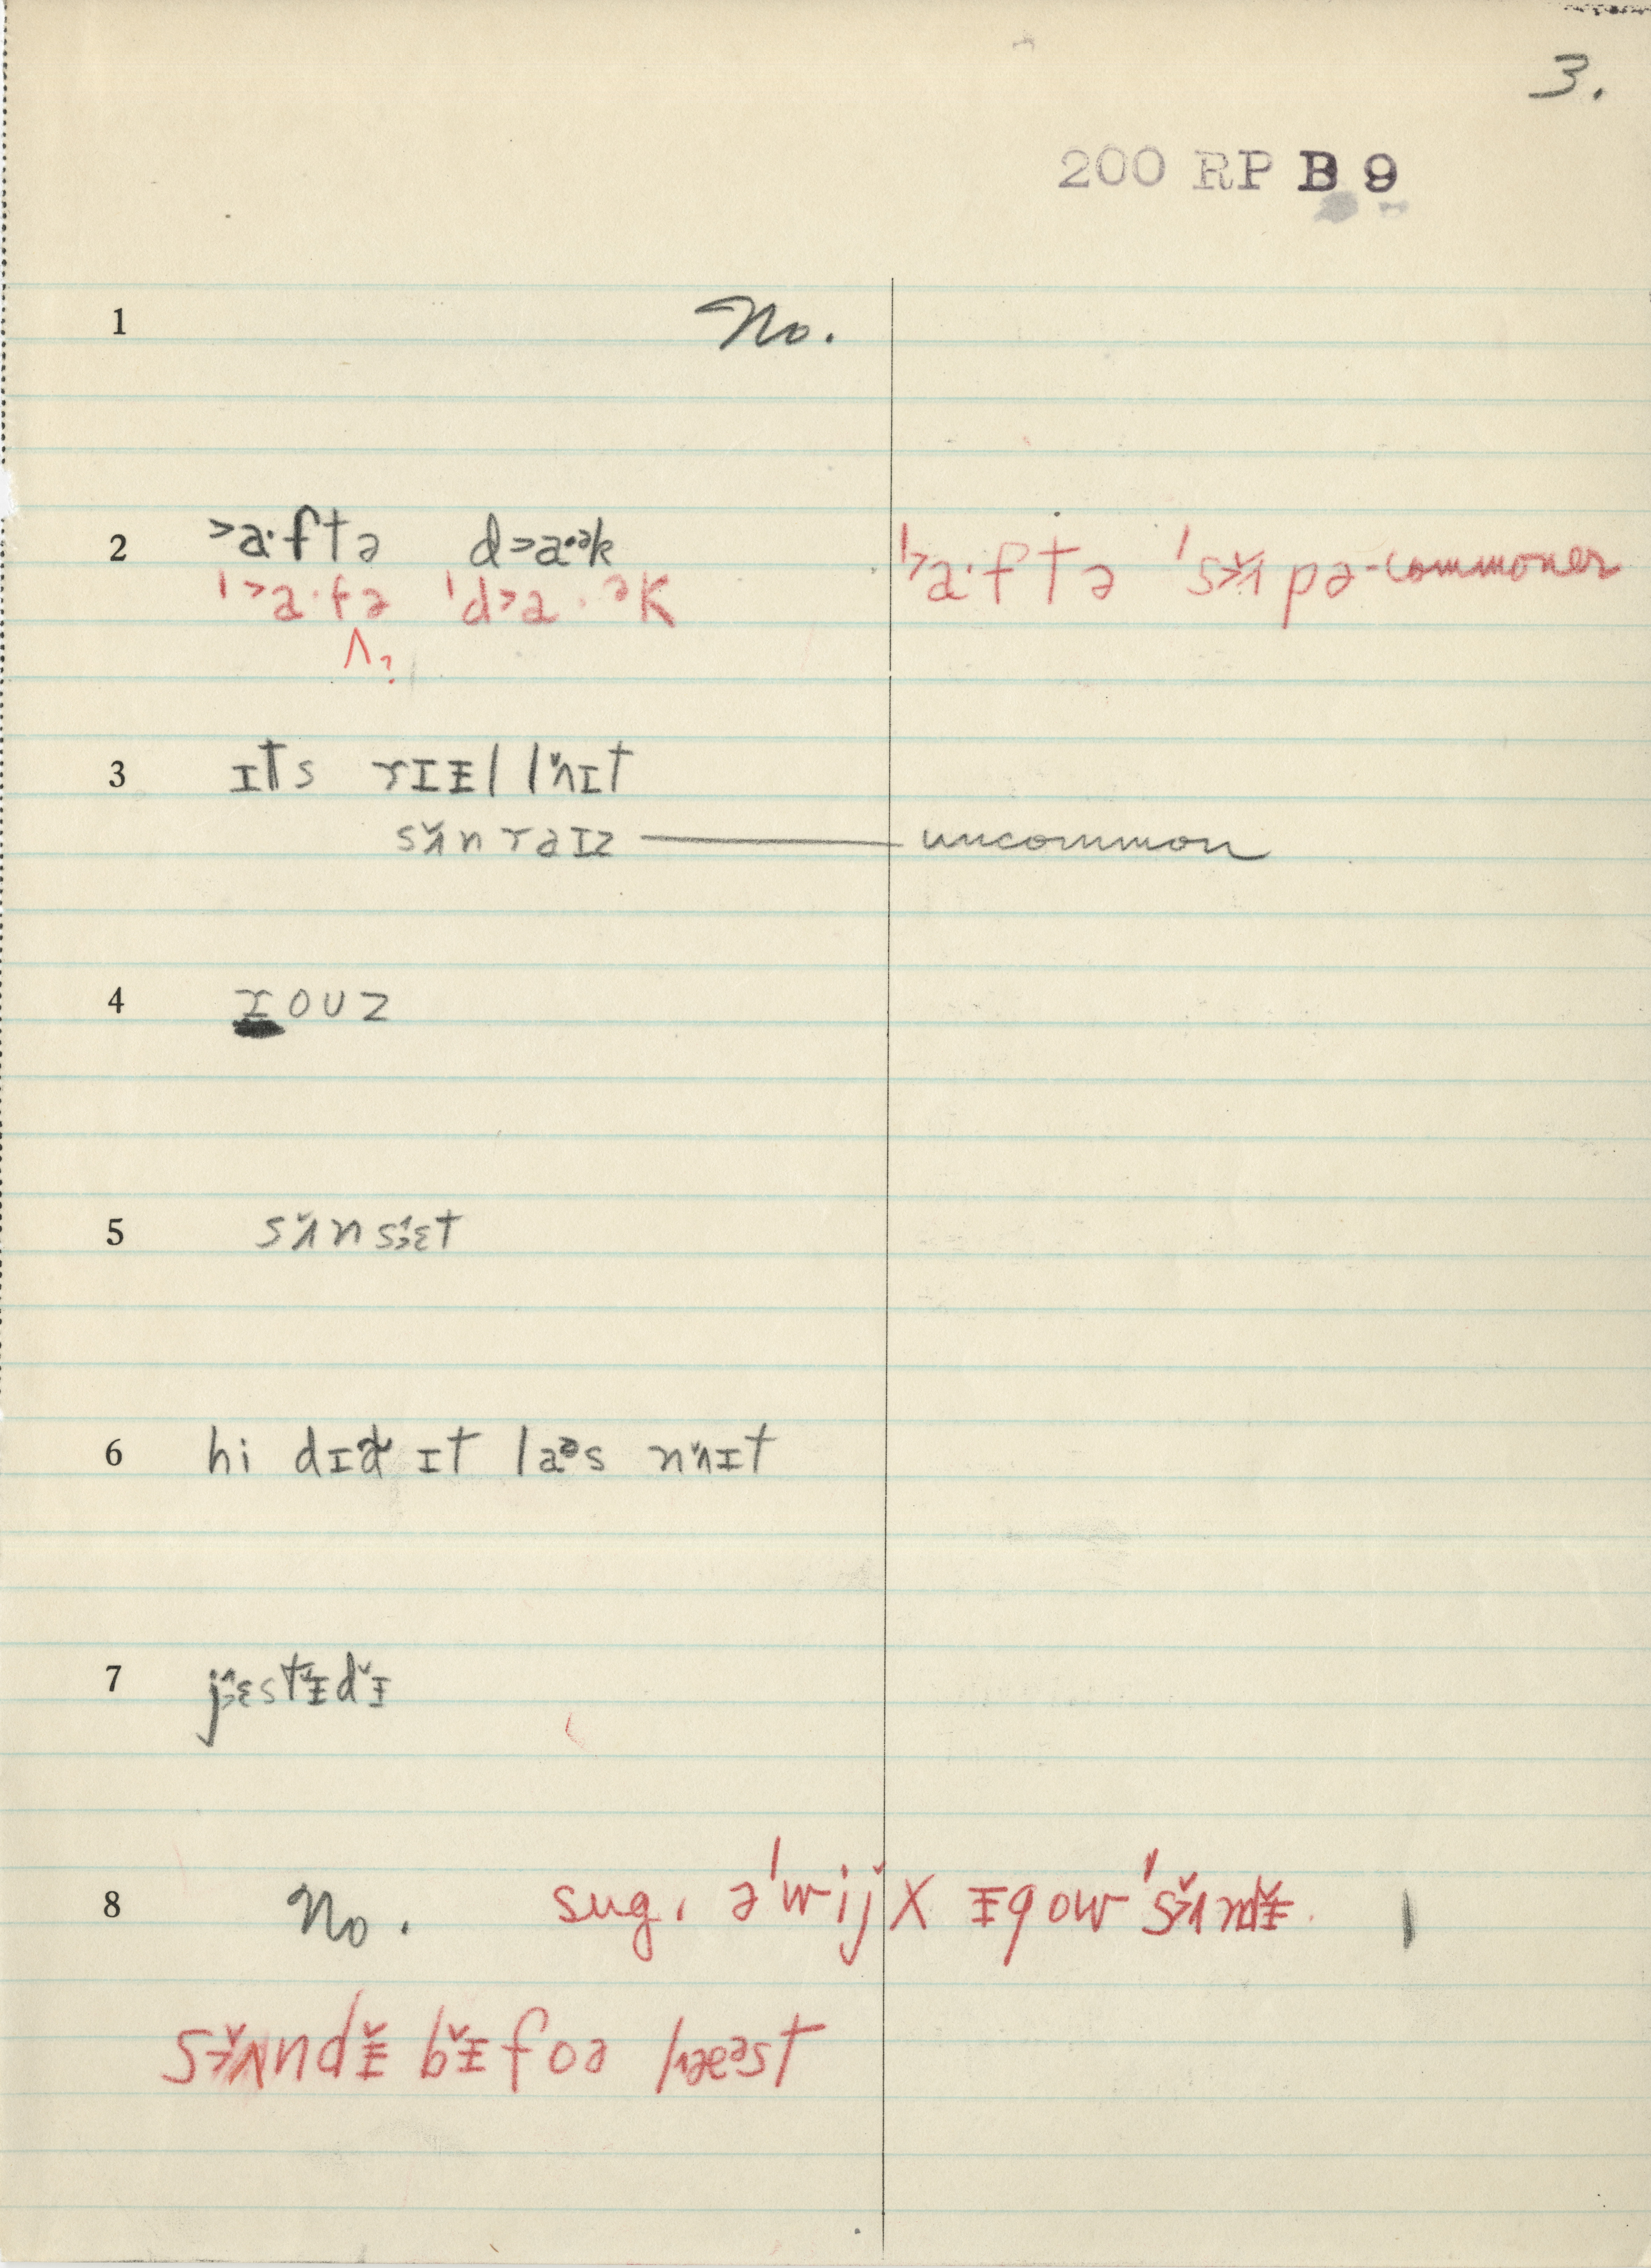 3.
200 RP B 9
1 No.
2 >a·ftə d>a·ᵊk
ˈ>a·fə ˈd>a·ᵊk ˈ>a·ftə ˈs>ʌ̌pə - commoner
^?
3 ɪts rɪɪ̵l lʌ̌ɪt
sʌ̌nraɪz — uncommon
4 rouz
5 sʌ̌nsɛt
6 hi dɪd ɪt laᵊs nʌ̌ɪt
7 jɛstɪ̵̌dɪ̵̌
8 No. sug. əˈwij̆ x ɪ̵gow ˈs>ʌ̌ndɪ̵̌. |
s>ʌ̌ndɪ̵̌ bɪ̵̌foə læᵊst